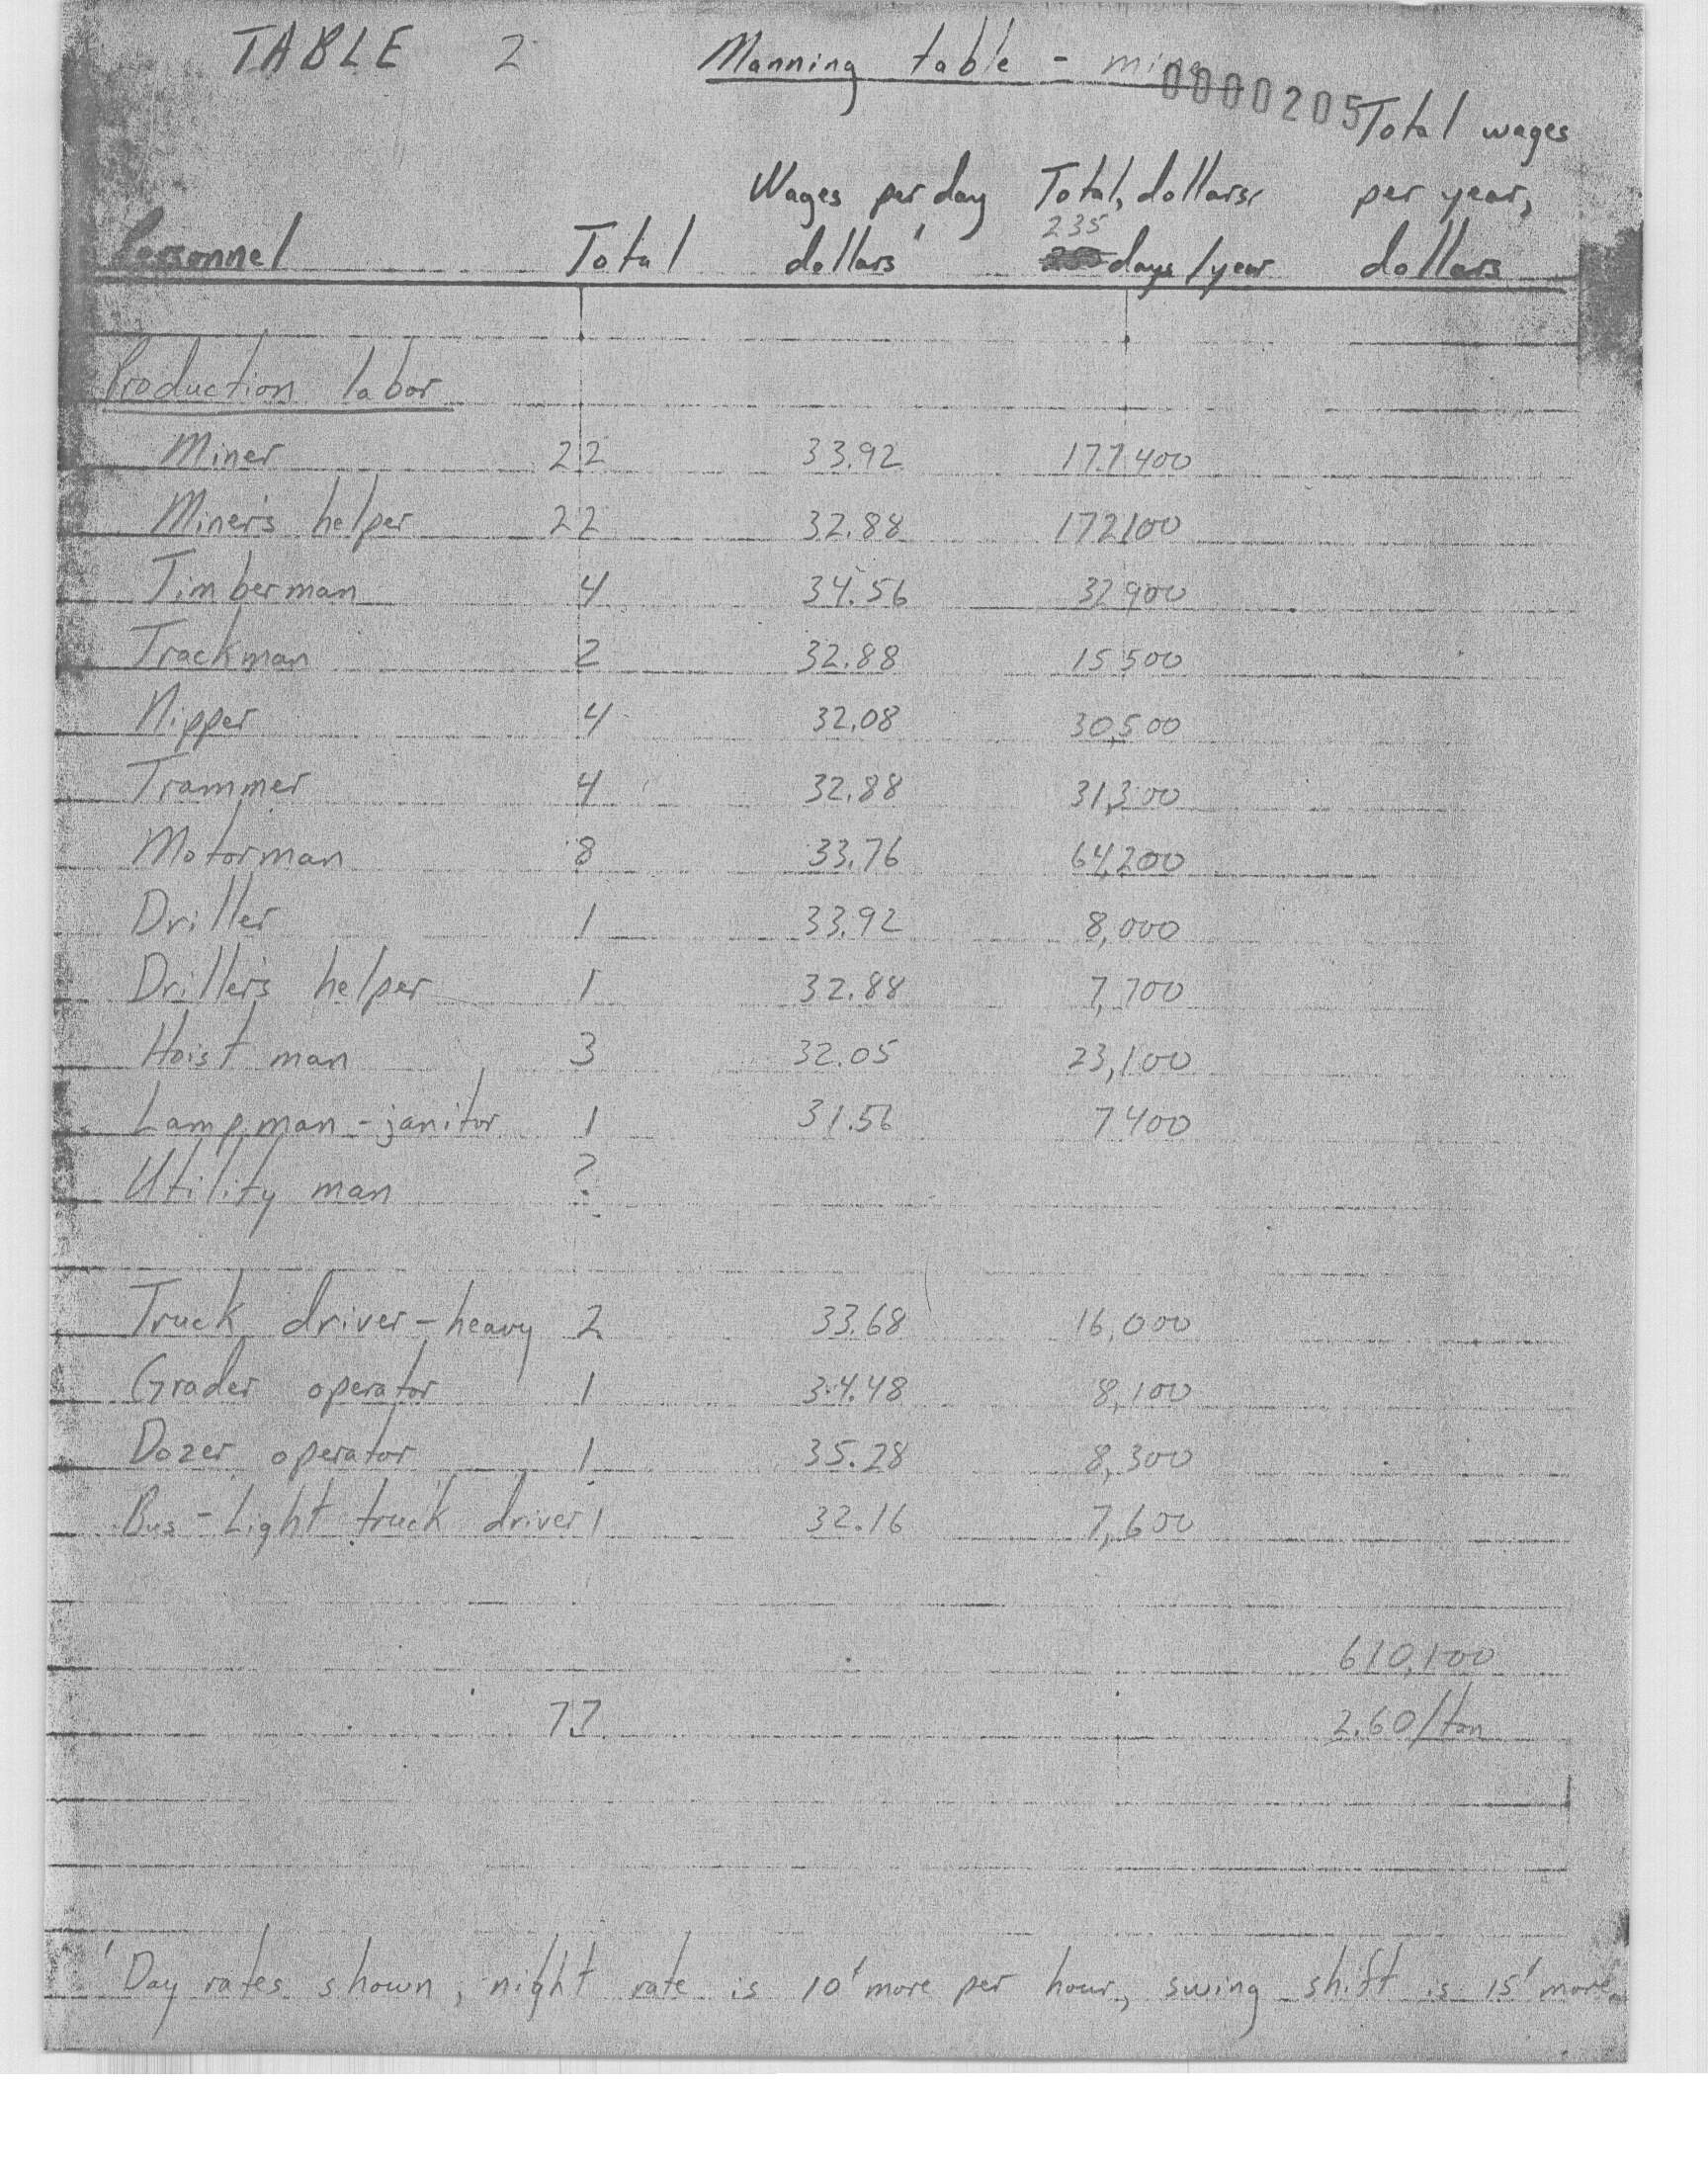 TABLE 2 Manning table - mine
0000205
Total wages
Wages per day Total, dollars, per year,
235
Personnel Total dollars¹ days/year dollars
Production labor
Miner 22 33.92 177,400
Miner's helper 22 32.88 172,100
Timberman 4 34.56 32,900
Trackman 2 32.88 15,500
Nipper 4 32.08 30,500
Trammer 4 32.88 31,300
Motorman 8 33.76 64,200
Driller 1 33.92 8,000
Driller's helper 1 32.88 7,700
Hoist man 3 32.05 23,100
Lampman-janitor 1 31.56 7400
Utility man ?
Truck driver-heavy 2 33.68 16,000
Grader operator 1 34.48 8,100
Dozer operator 1 35.28 8,300
Bus-Light truck driver 1 32.16 7,600
610,100
77 2.60/ton
¹Day rates shown, night rate is 10¢ more per hour, swing shift is 15¢ more.